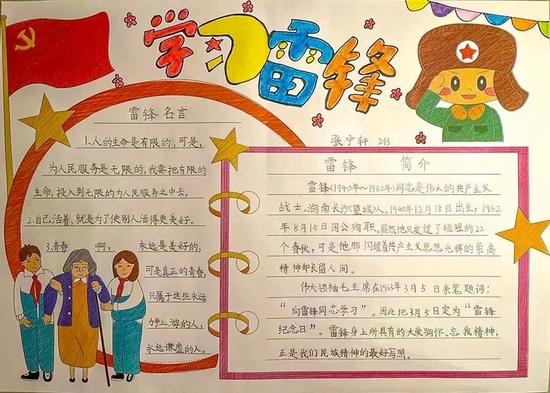 学习雷锋
张宁轩 213
雷锋名言
1.人的生命是有限的，可是，
为人民服务是无限的，我要把有限的
生命，投入到无限的为人民服务之中去。
2.自己活着，就是为了使别人活得更美好。
3.青春啊，永远是美好的，
可是真正的青春，
只属于这些永远
力争上游的人，
永远谦虚的人。
雷锋 简介
雷锋（1940年～1962年）同志是伟大的共产主义
战士。湖南长沙（望城）人。1940年12月18日出生，1962
年8月15日因公殉职。虽然他只度过了短短的22
个春秋，可是他那闪耀着共产主义思想光辉的崇高
精神却长留人间。
伟大领袖毛主席在1963年3月5日亲笔题词：
“向雷锋同志学习”。因此把3月5定为“雷锋
纪念日”。雷锋身上所具有的大爱胸怀、忘我精神，
正是我们民族精神的最好写照。